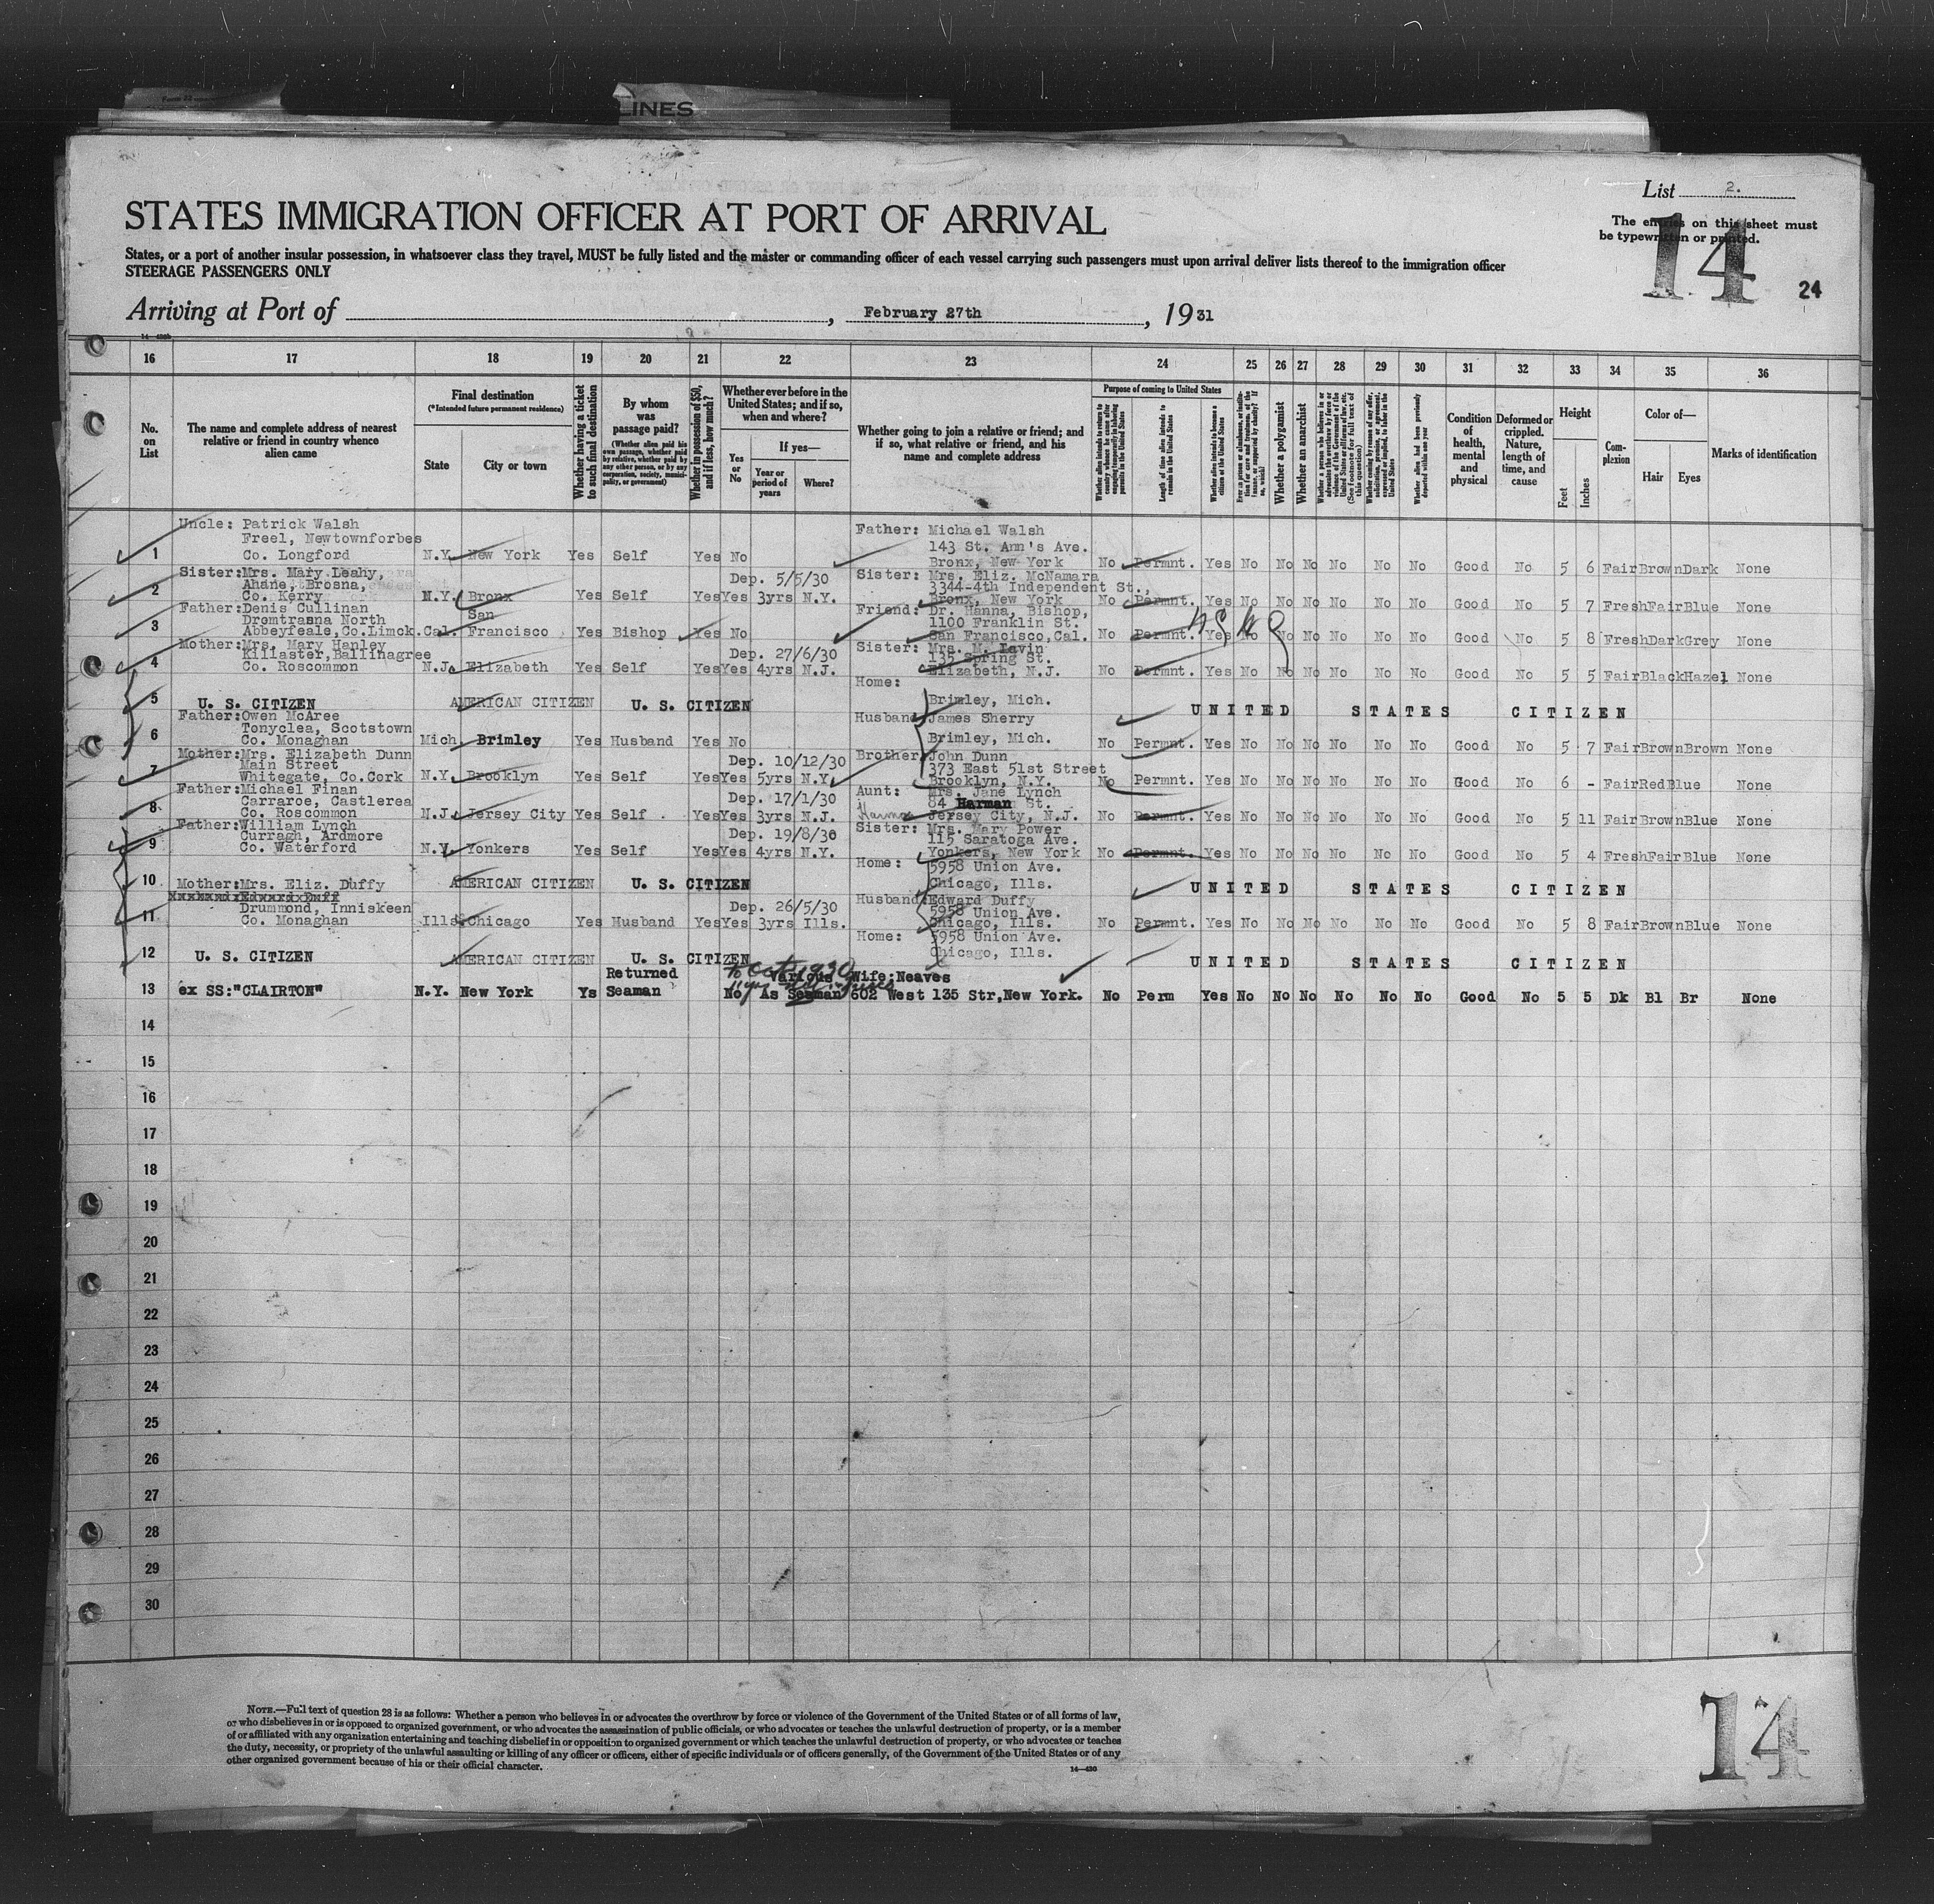 LINES
List 2.
STATES IMMIGRATION OFFICER AT PORT OF ARRIVAL
The entries on this sheet must
be typewritten or printed.
14
24
States, or a port of another insular possession, in whatsoever class they travel, MUST be fully listed and the master or commanding officer of each vessel carrying such passengers must upon arrival deliver lists thereof to the immigration officer
STEERAGE PASSENGERS ONLY
Arriving at Port of , February 27th , 1931
16 17 18 19 20 21 22 23 24 25 26 27 28 29 30 31 32 33 34 35 36
No. on List
The name and complete address of nearest relative or friend in country whence alien came
Final destination
(*Intended future permanent residence)
State City or town
Whether having a ticket to such final destination
By whom was passage paid?
(Whether alien paid his own passage, whether paid by relative, whether paid by any other person, or by any corporation, society, municipality, or government)
Whether in possession of $50, and if less, how much?
Whether ever before in the United States; and if so, when and where?
Yes or No
If yes—
Year or period of years
Where?
Whether going to join a relative or friend; and if so, what relative or friend, and his name and complete address
Purpose of coming to United States
Whether alien intends to return to country whence he came after engaging temporarily in laboring pursuits in the United States
Length of time alien intends to remain in the United States
Whether alien intends to become a citizen of the United States
Whether a polygamist
Whether an anarchist
Condition of health, mental and physical
Deformed or crippled. Nature, length of time, and cause
Height
Feet Inches
Complexion
Color of—
Hair Eyes
Marks of identification
Uncle: Patrick Walsh Father: Michael Walsh
Freel, Newtownforbes 143 St. Ann's Ave.
1 Co. Longford N.Y. New York Yes Self Yes No Bronx, New York No Permnt. Yes No No No No No No Good No 5 6 Fair Brown Dark None
Sister: Mrs. Mary Leahy, Dep. 5/5/30 Sister: Mrs. Eliz. McNamara
Ahane, Brosna, 3344-4th Independent St.,
2 Co. Kerry N.Y. Bronx Yes Self Yes Yes 3yrs N.Y. Bronx, New York No Permnt. Yes No No No No No No Good No 5 7 Fresh Fair Blue None
Father: Denis Cullinan San Friend: Dr. Hanna, Bishop,
Dromtrasna North 1100 Franklin St.
3 Abbeyfeale, Co.Limck. Cal. Francisco Yes Bishop Yes No San Francisco, Cal. No Permnt. Yes No No No No No No Good No 5 8 Fresh Dark Grey None
Mother: Mrs. Mary Hanley Dep. 27/6/30 Sister: Mrs. M. Lavin
Killaster, Ballinagree 135 Spring St.
4 Co. Roscommon N.J. Elizabeth Yes Self Yes Yes 4yrs N.J. Elizabeth, N.J. No Permnt. Yes No No No No No No Good No 5 5 Fair Black Hazel None
Home:
5 U. S. CITIZEN AMERICAN CITIZEN U. S. CITIZEN Brimley, Mich. UNITED STATES CITIZEN
Father: Owen McAree Husband James Sherry
Tonyclea, Scotstown
6 Co. Monaghan Mich. Brimley Yes Husband Yes No Brimley, Mich. No Permnt. Yes No No No No No No Good No 5 7 Fair Brown Brown None
Mother: Mrs. Elizabeth Dunn Dep. 10/12/30 Brother John Dunn
Main Street 373 East 51st Street
7 Whitegate, Co.Cork N.Y. Brooklyn Yes Self Yes Yes 5yrs N.Y. Brooklyn, N.Y. No Permnt. Yes No No No No No No Good No 6 - Fair Red Blue None
Father: Michael Finan Dep. 17/1/30 Aunt: Mrs. Jane Lynch
Carraroe, Castlerea 84 Harman St.
8 Co. Roscommon N.J. Jersey City Yes Self Yes Yes 3yrs N.J. Jersey City, N.J. No Permnt. Yes No No No No No No Good No 5 11 Fair Brown Blue None
Father: William Lynch Dep. 19/8/30 Sister: Mrs. Mary Power
Curragh, Ardmore 115 Saratoga Ave.
9 Co. Waterford N.Y. Yonkers Yes Self Yes Yes 4yrs N.Y. Yonkers, New York No Permnt. Yes No No No No No No Good No 5 4 Fresh Fair Blue None
Home: 5958 Union Ave.
10 AMERICAN CITIZEN U. S. CITIZEN Chicago, Ills. UNITED STATES CITIZEN
Mother: Mrs. Eliz. Duffy Husband: Edward Duffy
Drummond, Inniskeen Dep. 26/5/30 5958 Union Ave.
11 Co. Monaghan Ills. Chicago Yes Husband Yes Yes 3yrs Ills. Chicago, Ills. No Permnt. Yes No No No No No No Good No 5 8 Fair Brown Blue None
Home: 5958 Union Ave.
12 U. S. CITIZEN AMERICAN CITIZEN U. S. CITIZEN Chicago, Ills. UNITED STATES CITIZEN
Returned To Oct 1930 Various Wife: Neaves
13 ex SS:"CLAIRTON" N.Y. New York Ys Seaman No As Seaman 602 West 135 Str, New York. No Perm Yes No No No No No No Good No 5 5 Dk Bl Br None
14
15
16
17
18
19
20
21
22
23
24
25
26
27
28
29
30
NOTE.—Full text of question 28 is as follows: Whether a person who believes in or advocates the overthrow by force or violence of the Government of the United States or of all forms of law,
or who disbelieves in or is opposed to organized government, or who advocates the assassination of public officials, or who advocates or teaches the unlawful destruction of property, or is a member
of or affiliated with any organization entertaining and teaching disbelief in or opposition to organized government or which teaches the unlawful destruction of property, or who advocates or teaches
the duty, necessity, or propriety of the unlawful assaulting or killing of any officer or officers, either of specific individuals or of officers generally, of the Government of the United States or of any
other organized government because of his or their official character.
14—430
14